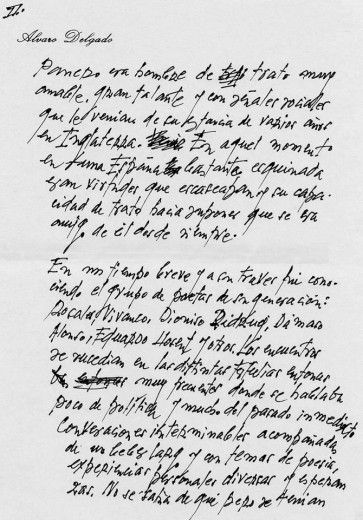 II.
Alvaro Delgado
Panero era hombre de trato muy
amable, gran talante y con señales sociales
que le venían de su estancia de varios años
en Inglaterra. En aquel momento
en una España bastante esquinada
eran virtudes que escaseaban y su capa-
cidad de trato hacía suponer que se era
amigo de él desde siempre.
En un tiempo breve y a su través fui cono-
ciendo el grupo de poetas de su generación:
Rosales, Vivanco, Dionisio Ridruejo, Dámaso
Alonso, Eduardo Llosent y otros. Los encuentros
se sucedían en las distintas entonces
muy frecuentes donde se hablaba
poco de política y mucho del pasado inmediato
Conversaciones interminables acompañadas
de un bebe largo y con temas de poesía,
experiencias personales diversas y esperan
zas. No se sabía de qué pero se tenían